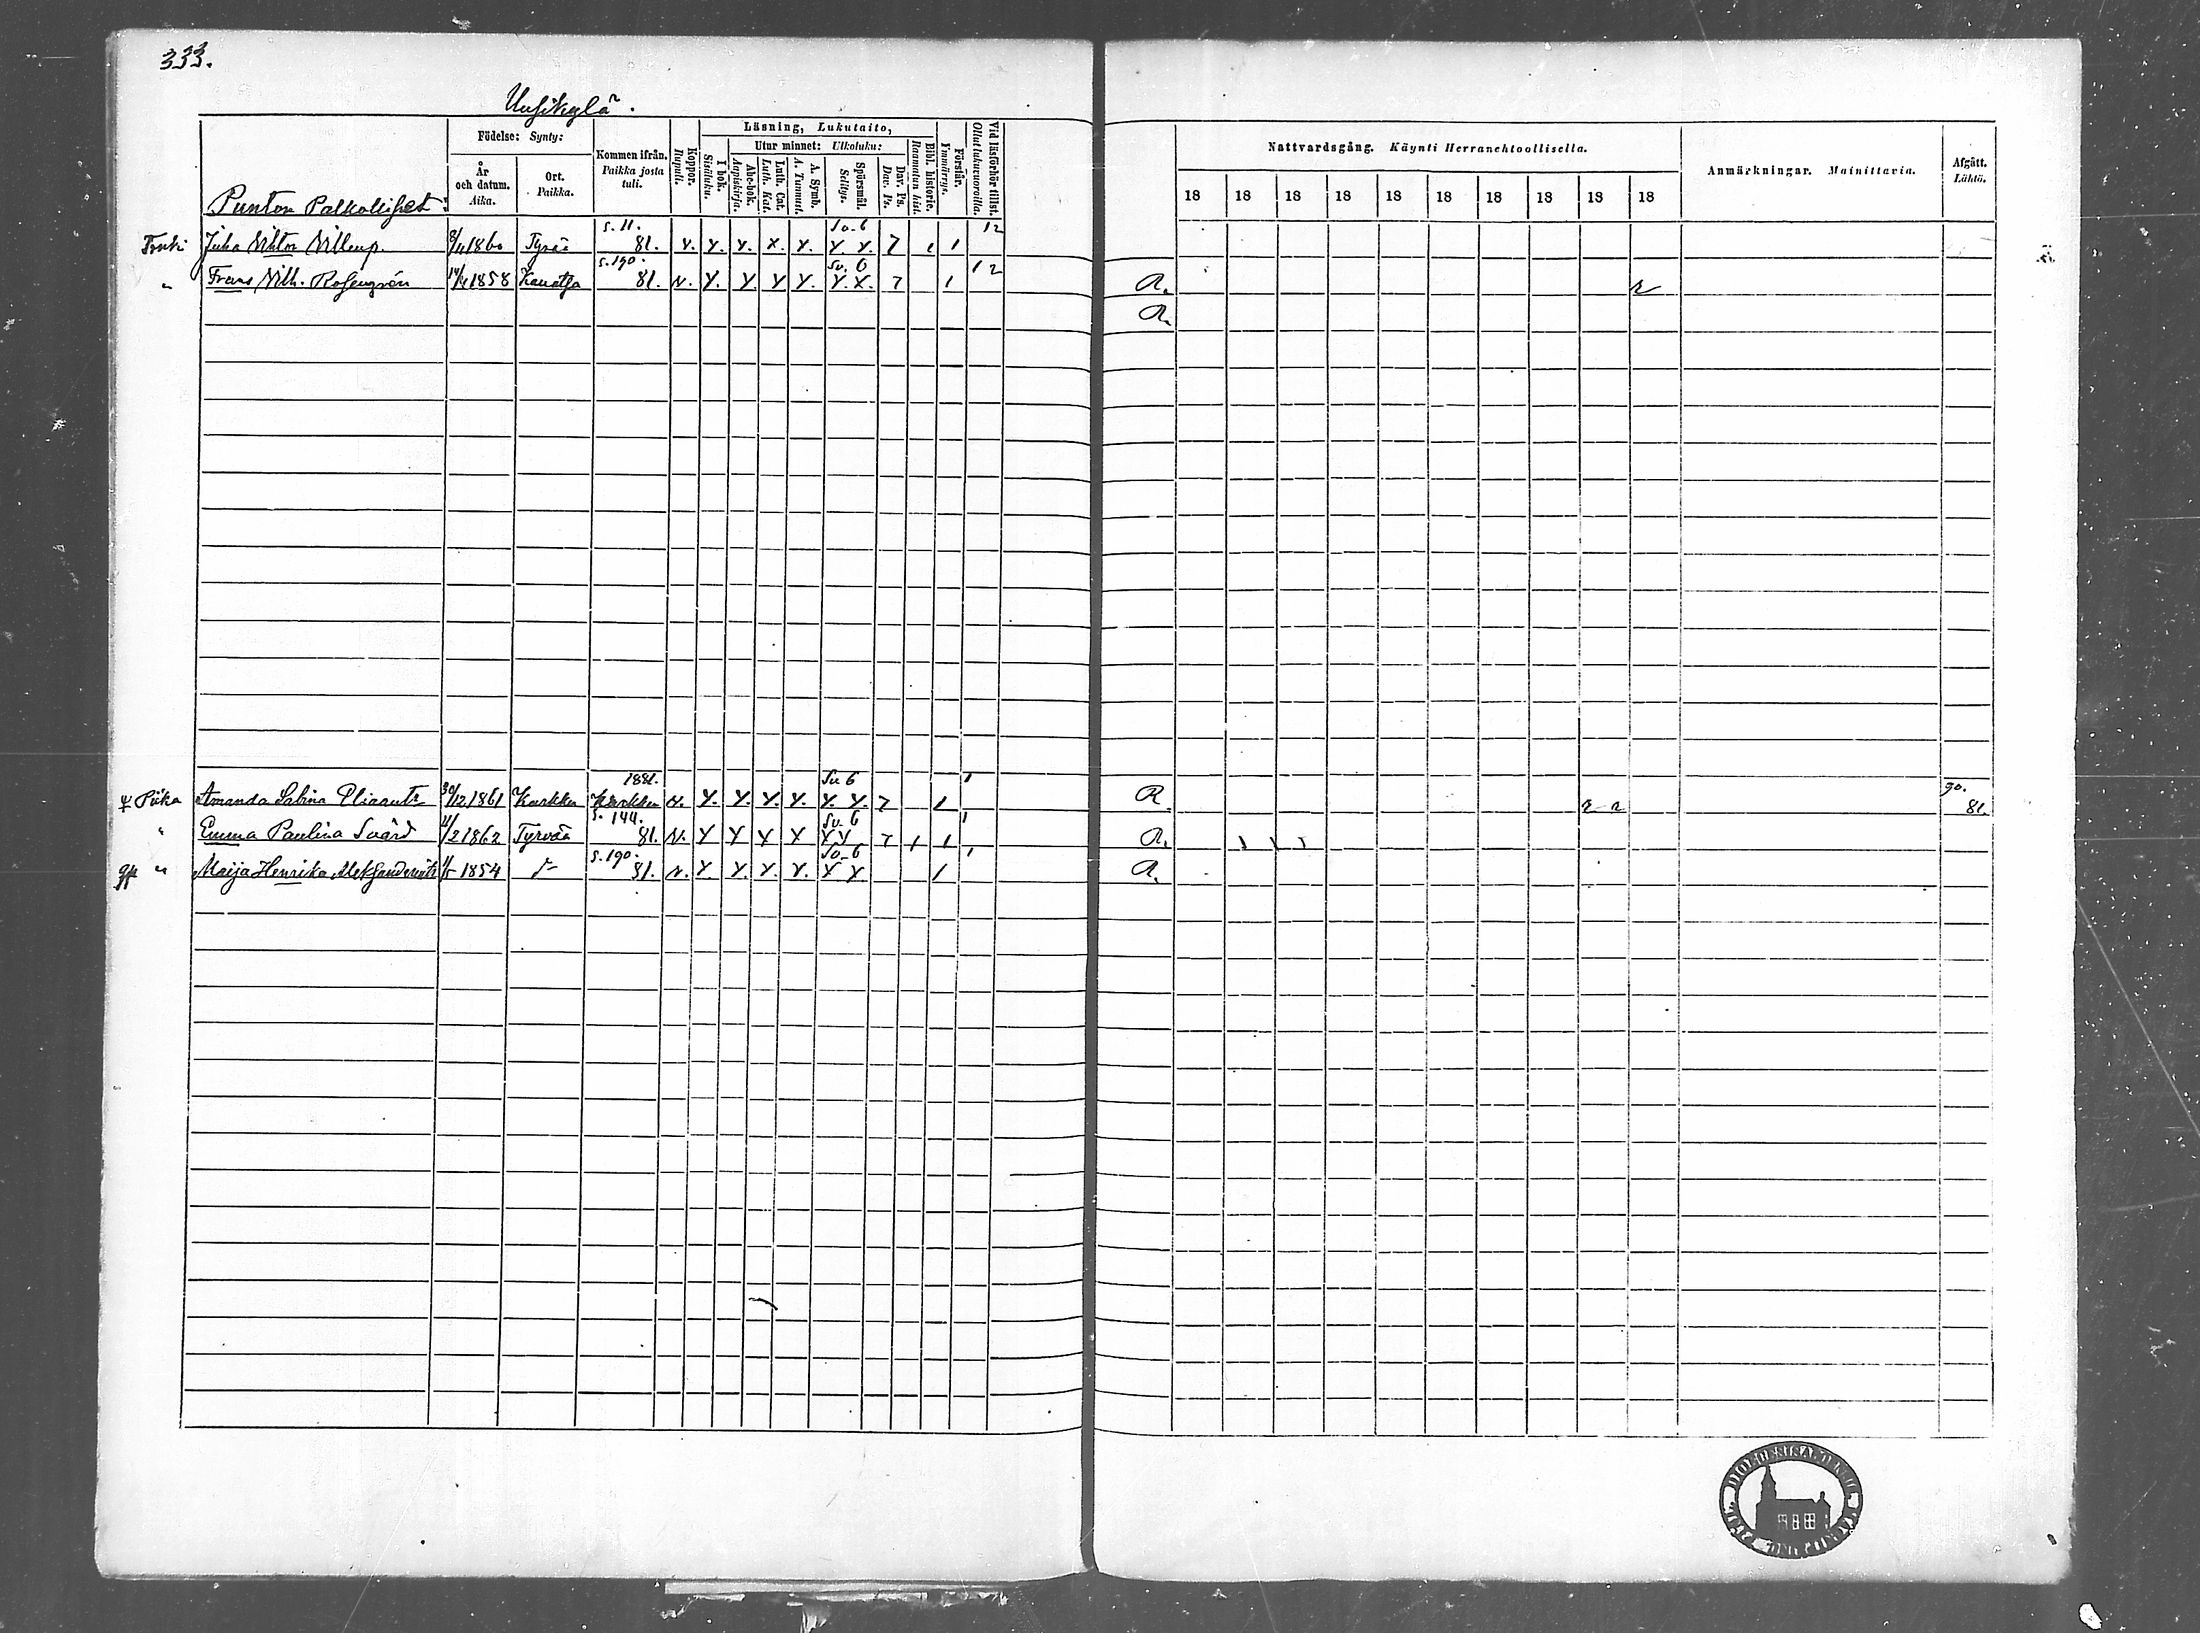 333.
Uusikylä.
Födelse: Synty:
År och datum. Aika.
Ort. Paikka.
Kommen ifrån. Paikka josta tuli.
Koppor. Rupuli.
Läsning, Lukutaito,
I bok. Sisäluku.
Utur minnet: Ulkoluku:
Abc-bok. Aapiskirja.
Luth. Cat. Luth. Kat.
A. Symb. A. Tunnust.
Spörsmål. Selitys.
Dav. Ps. Dav. Ps.
Bibl. historie. Raamatun hist.
Förstår. Ymmärrys.
Vid läsförhör tillst. Ollut lukuvuoroilla.
Nattvardsgång. Käynti Herranehtoollisella.
18 18 18 18 18 18 18 18 18 18
Anmärkningar. Mainittavia.
Afgått. Lähtö.
Punton Palkolliset:
s. 11. 12
Juha Viktor Villenp. 8/11 1860 81. v. Y. Y. X. X. Y. Y. 7 1 1
s. 190. 12
" Frans Vilh. Rosengrén 14/4 1858 81. v. Y. Y Y Y. Y. X. 7 1 R. r
R.
1881. 90.
Piika Amanda Sabina 30/12 1861 Karkku Karkku v. Y. Y. Y. Y. Y. Y. 7 1 R r r 81.
s. 144.
" Emma Paulina Svärd 1862 Tyrvää 81. v. Y Y Y X Y Y 7 1 1 R.
s. 190.
" Maija Henrika 1854 81. v. Y. Y. Y. Y. Y Y 1 R.